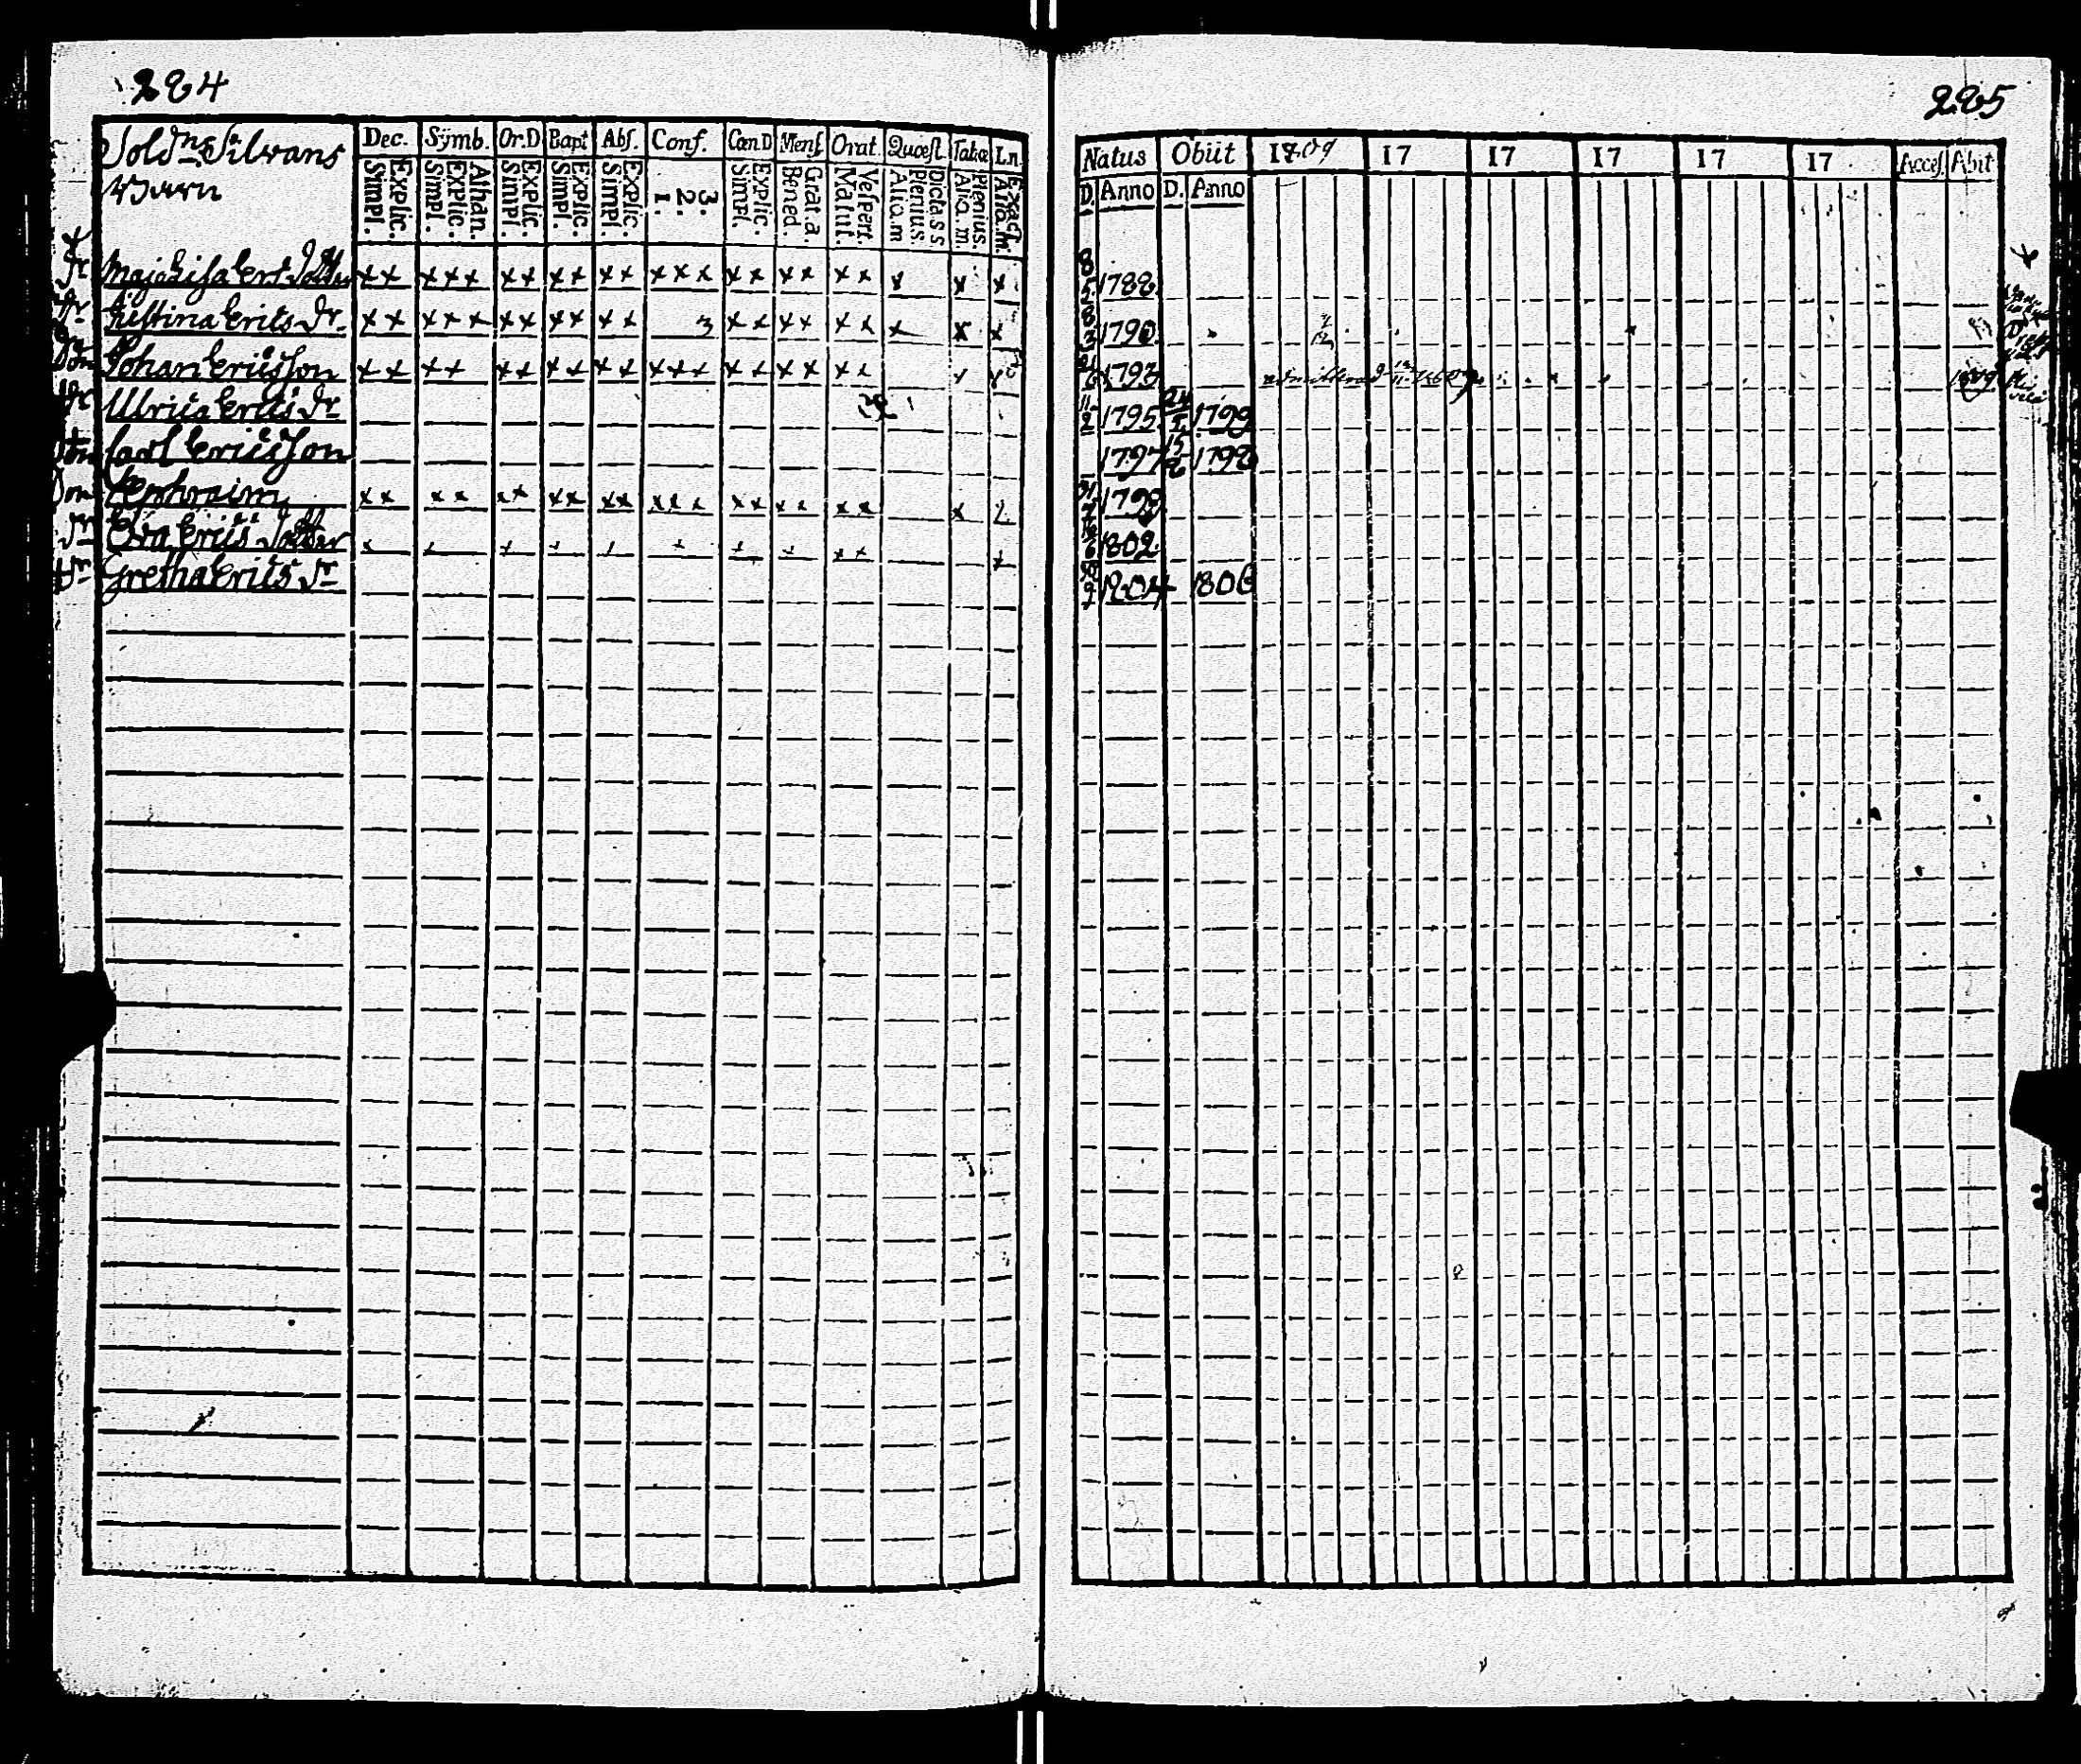 284
Sold:ns Silvans
Barn
Dec. Symb. Or.D Bapt Abs. Conf. Cœn.D Mens. Orat. Quœst. Tabœ Ln.
Explic. Simpl. Athan. Explic. Simpl. Explic. Simpl. Explic. Simpl. Explic. Simpl. 3. 2. 1. Explic. Simpl. Grat. a. Bened. Vespert. Matut. Dicta s s Plenius. Aliq. m Plenius. Aliq. m. Exact. Aliq. m.
Dr Maja Lisa Erics Dotter x x x x x x x x x x x x x x x x x x x x x x
Dr Kistina Erics Dr x x x x x x x x x x 3 x x x x x x x x x
Son Johan Ericsson x x x x x x x x x x x x x x x x x x x
Dr Ulrica Erics Dr
Son Carl Ericsson
Son Ephraim x x x x x x x x x x x x x x x x x x x x
Dr Eva Erics Dotter x x x x x x x x x x x
Dr Gretha Erics Dr
285
Natus Obiit 1809 17 17 17 17 17 Acces. Abit
D. Anno D. Anno
8/5 1788
8/3 1790
1793 1809
11/2 1795 24/5 1799
1797 15/8 1798
1799
6 1802
9 1804 1806